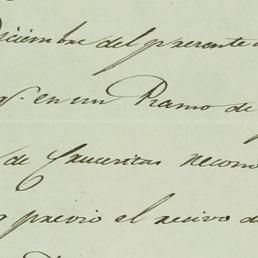 Diciembre del presente
en un Ramo de
de Crucecitas recono
previo el recivo de